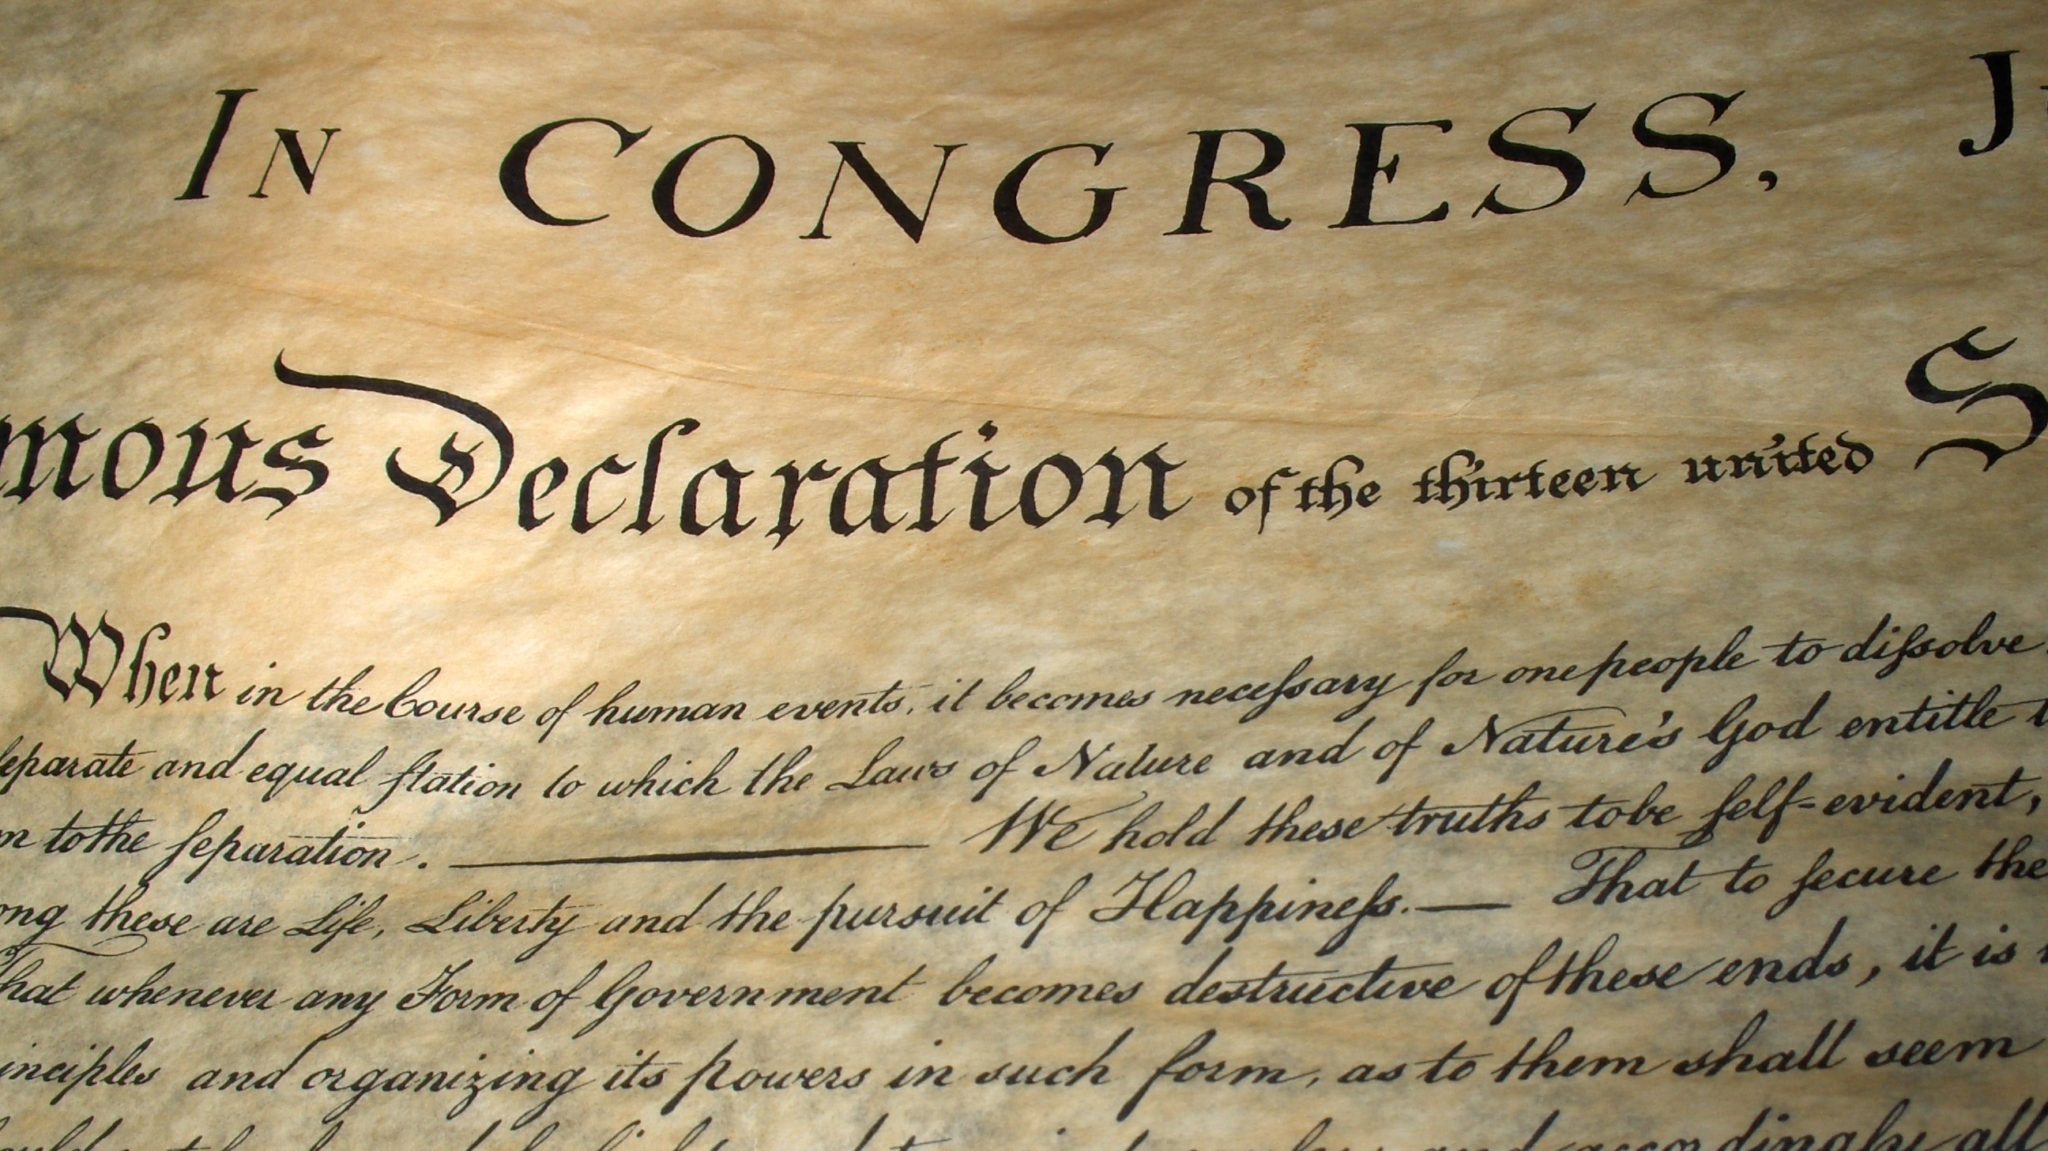 In CONGRESS, J
mous Declaration of the thirteen united S
When in the Course of human events, it becomes neceſsary for one people to diſsolve
ſeparate and equal ſtation to which the Laws of Nature and of Nature's God entitle t
m to the ſeparation. ———— We hold these truths to be ſelf-evident,
ong these are Life, Liberty and the pursuit of Happineſs.— That to ſecure the
hat whenever any Form of Government becomes destructive of these ends, it is
inciples and organizing its powers in such form, as to them shall seem
and accordingly all